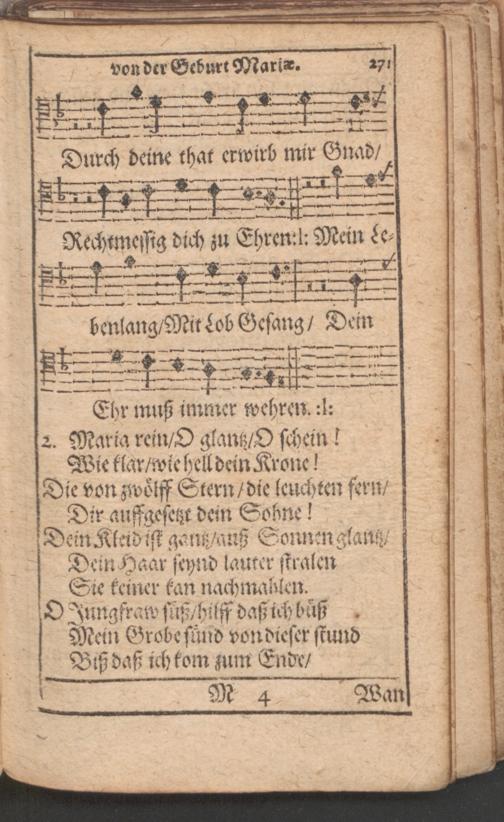 von der Geburt Mariæ. 271
Durch deine that erwirb mir Gnad/
Rechtmessig dich zu Ehren:l: Mein Le-
benlang/Mit Lob Gesang/ Dein
Ehr muß immer wehren. :l:
2. Maria rein/O glantz/O schein!
Wie klar/wie hell dein Krone!
Die von zwölff Stern/die leuchten fern/
Dir auffgesetzt dein Sohne!
Dein Kleid ist gantz/auß Sonnen glantz/
Dein Haar seynd lauter stralen
Sie keiner kan nachmahlen.
O Jungfraw süß/hilff daß ich büß
Mein Grobe sünd von dieser stund
Biß daß ich kom zum Ende/
M 4 Wan